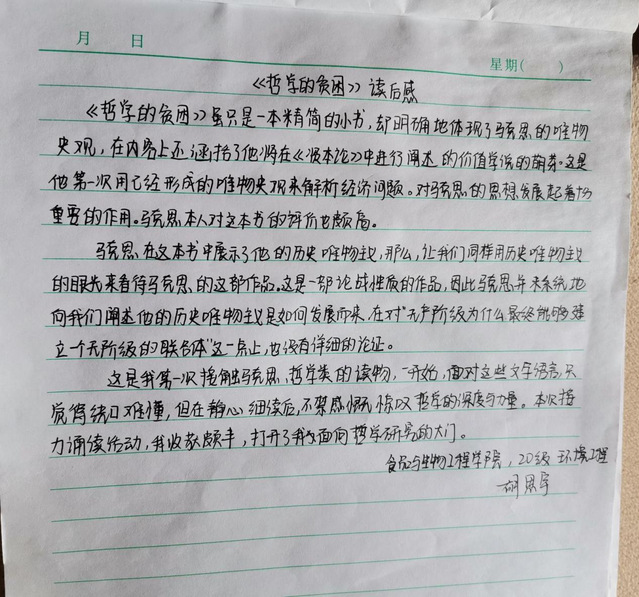 月 日
星期( )
《哲学的贫困》读后感
《哲学的贫困》虽只是一本精简的小书,却明确地体现了马克思的唯物
史观,在内容上还涵括了他将在《资本论》中进行阐述的价值学说的萌芽。这是
他第一次用已经形成的唯物史观来解析经济问题。对马克思的思想发展起着
重要的作用。马克思本人对这本书的评价也颇高。
马克思在这本书中展示了他的历史唯物主义,那么,让我们同样用历史唯物主义
的眼光来看待马克思的这部作品。这是一部论战性质的作品,因此马克思并未系统地
向我们阐述他的历史唯物主义是如何发展而来,在对"无产阶级为什么最终能够建
立一个无阶级的联合体"这一点上,也没有详细的论证。
这是我第一次接触马克思,哲学类的读物,一开始,面对这些文字语言,只
觉得绕口难懂,但在静心细读后,不禁感慨,惊叹哲学的深度与力量。本次接
力诵读活动,我收获颇丰,打开了我面向哲学研究的大门。
食品与生物工程学院,20级 环境工程
胡